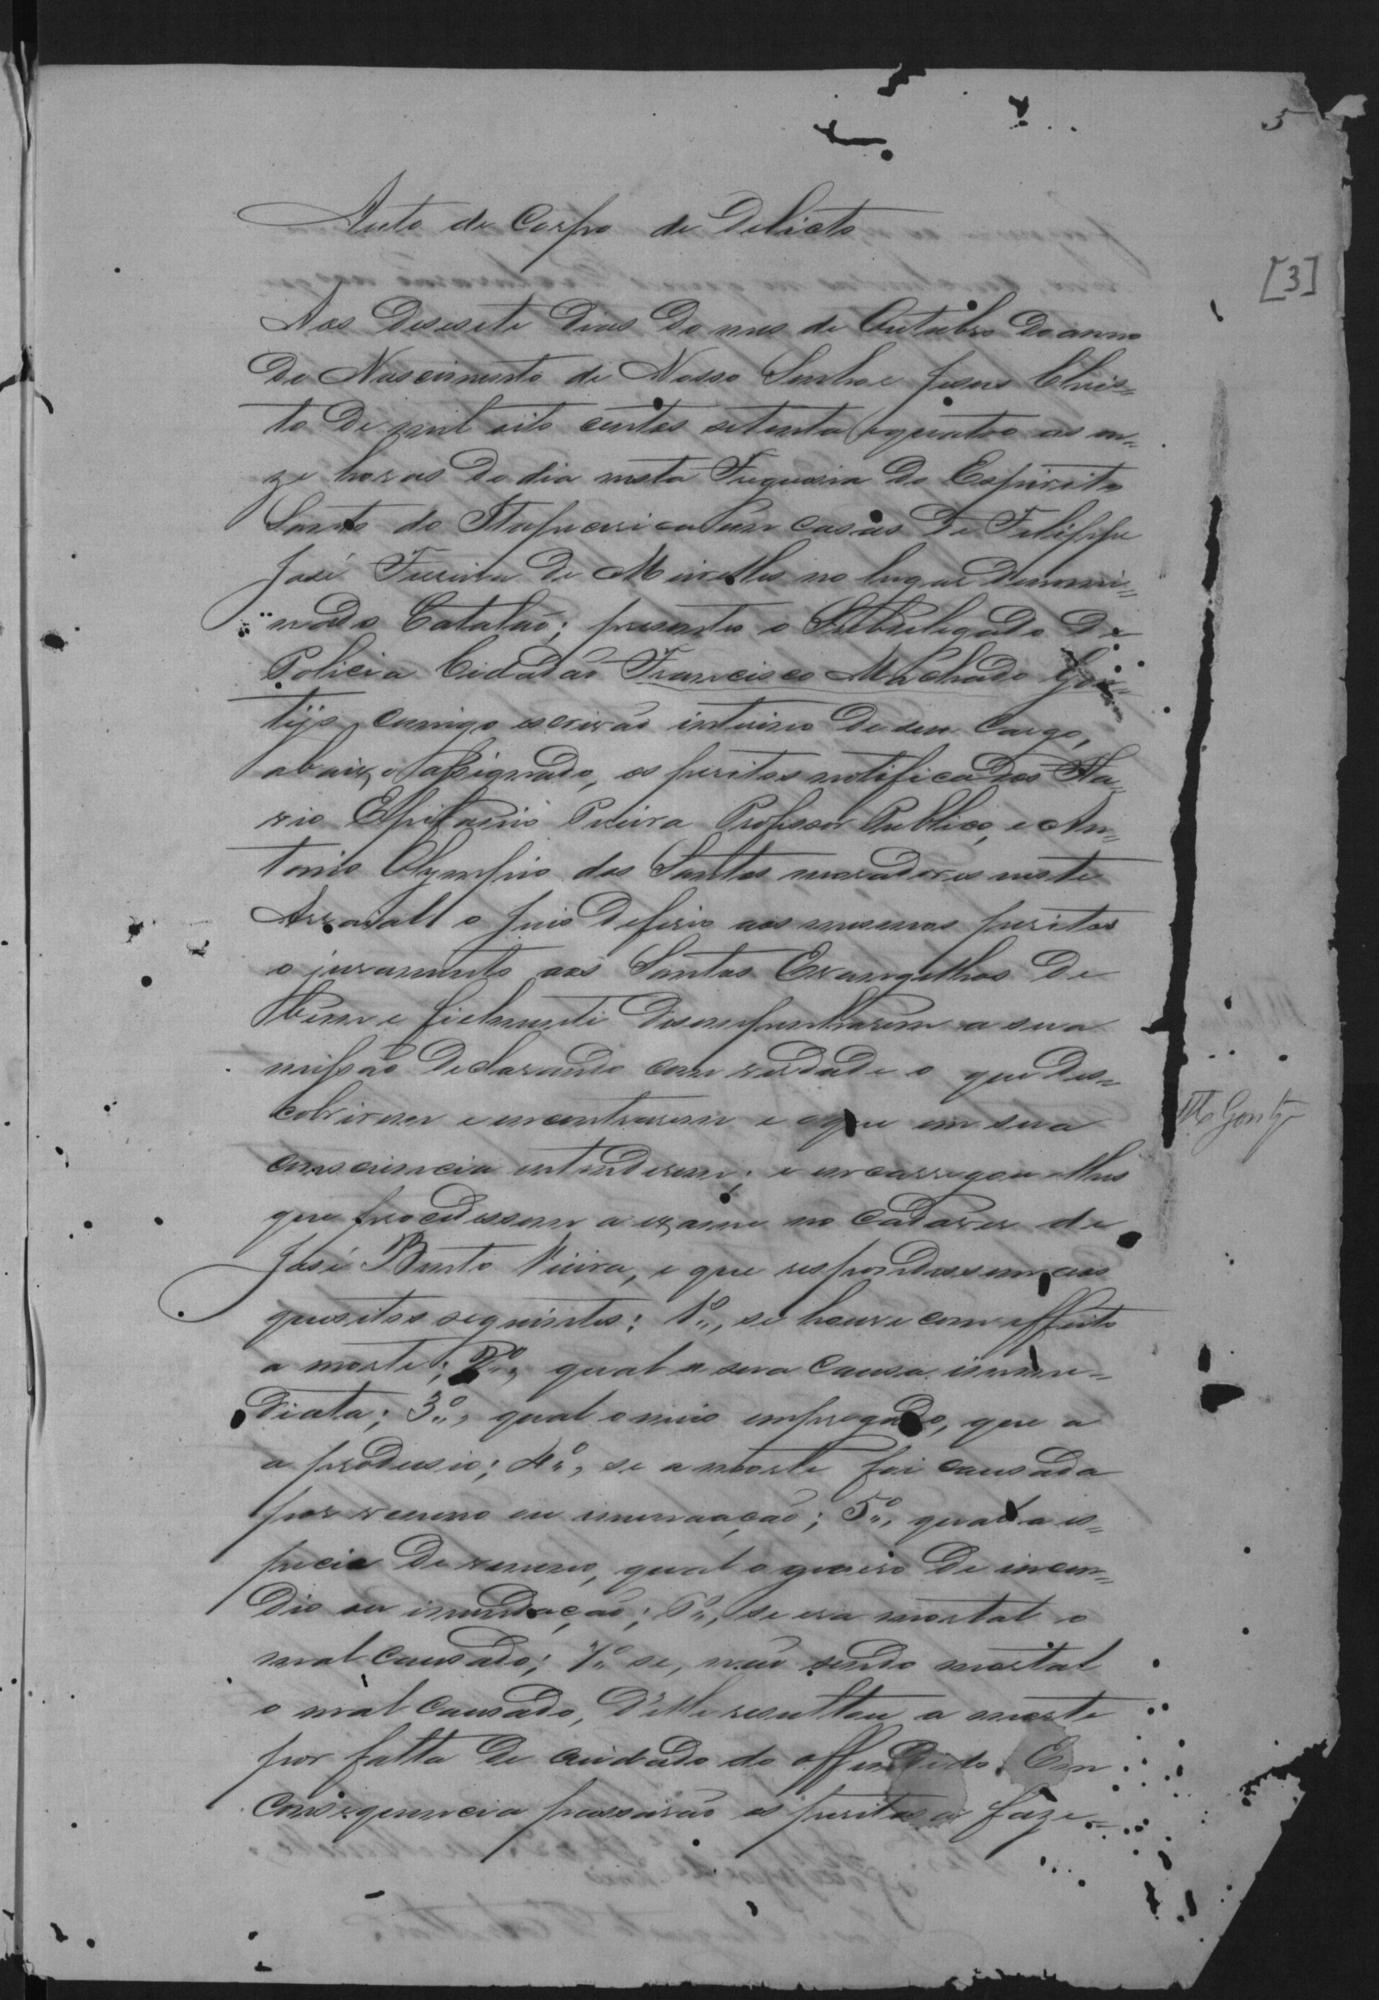 5
[3]
Auto de Corpo de Delicto
Aos desesete dias do mes de Outubro do anno
do Nascimento de Nosso Senhor Jesus Chris=
to de mil oito centos setenta e quatro as on=
ze horas do dia nesta Freguesia do Espirito
Santo do Itapecerica em casas de Felippe
José Ferreira de Meirelles no lugar denomi=
nado Catalão; presente o Subdelegado de
Policia Cidadão Francisco Machado Gon=
tijo, comigo escrivão interino de seu cargo,
abaixo assignado, os peritos notificados
Epifanio Vieira Professor Publico, e An=
tonio Olympio dos Santos moradores neste
Arraial o Juis deferio aos mesmos peritos
o juramento aos Santos Evangelhos de
bem e fielmente desempenharem a sua
missão declarando com verdade o que des=
cobrirem e encontrarem e o que em sua
consciencia entenderem; e encarregou-lhes
que procedessem a exame no cadaver de
José Bento Vieira, e que respondessem aos
quesitos seguintes: 1º, se houve com effeito
a morte; 2º, qual a sua causa imme=
diata; 3º, qual o meio empregado, que a
a produsio; 4º, se a morte foi causada
por veneno ou inundação; 5º, qual a es=
pecie de veneno, qual o genero de incen=
dio ou inundação; 6º, se era mortal o
mal causado; 7º se, não sendo mortal
o mal causado, d'elle resultou a morte
por falta de cuidado do offendido. Em
consequencia passarão os peritos a faze=
M Gontijo